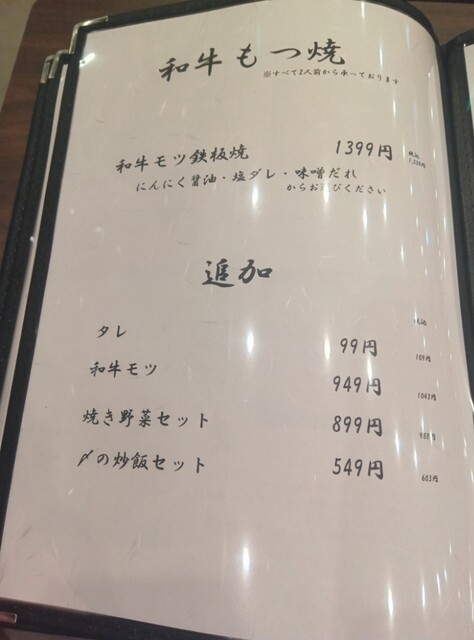 和牛もつ焼
※すべて2人前から承っております
和牛モツ鉄板焼 1399円 税込
にんにく醤油・塩ダレ・味噌だれ
からお びください
追加
税込
タレ 99円 109円
和牛モツ 949円 1043円
焼き野菜セット 899円
〆の炒飯セット 549円 603円